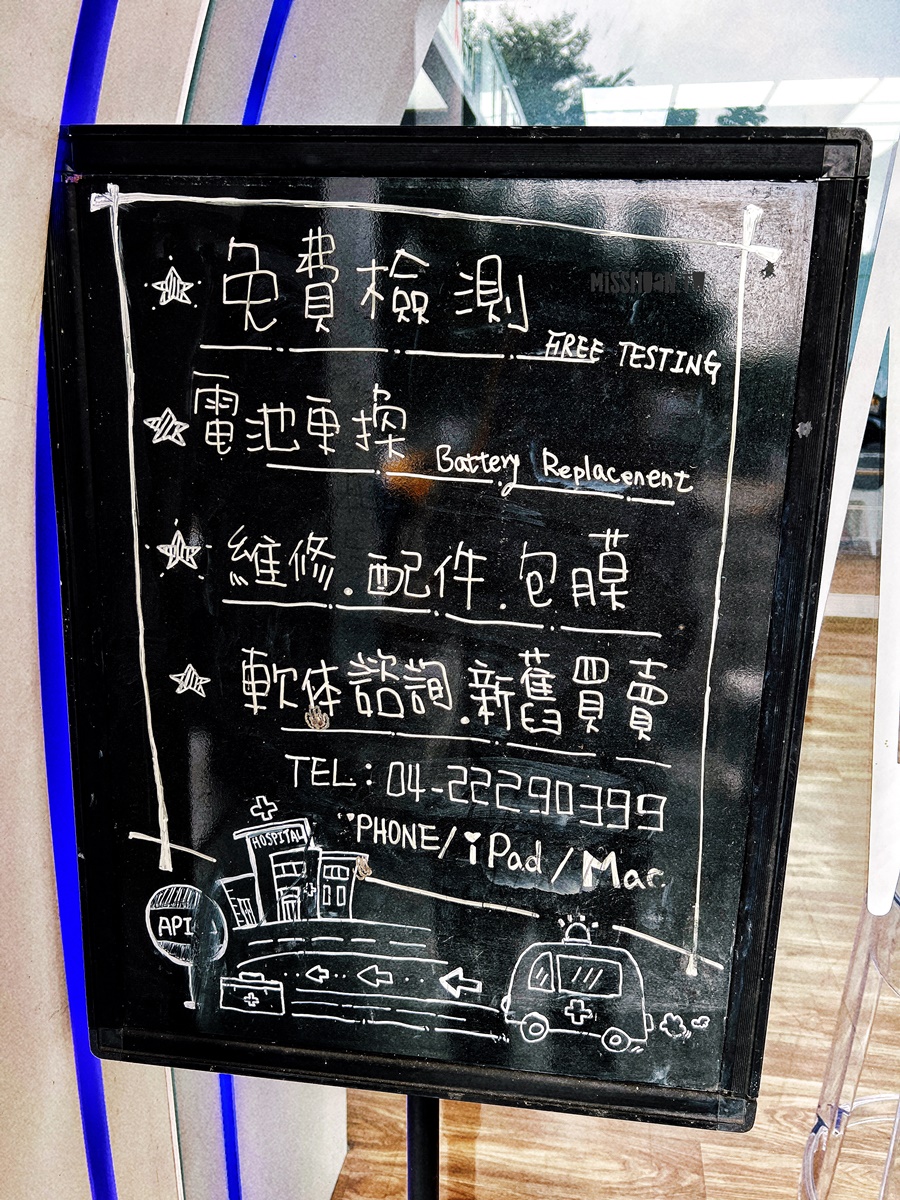 免費檢測
FREE TESTING
電池更換
Battery Replacenent
維修.配件.包膜
軟体諮詢.新舊買賣
TEL:04-22290399
iPHONE/iPad/Mac
HOSPITAL
API